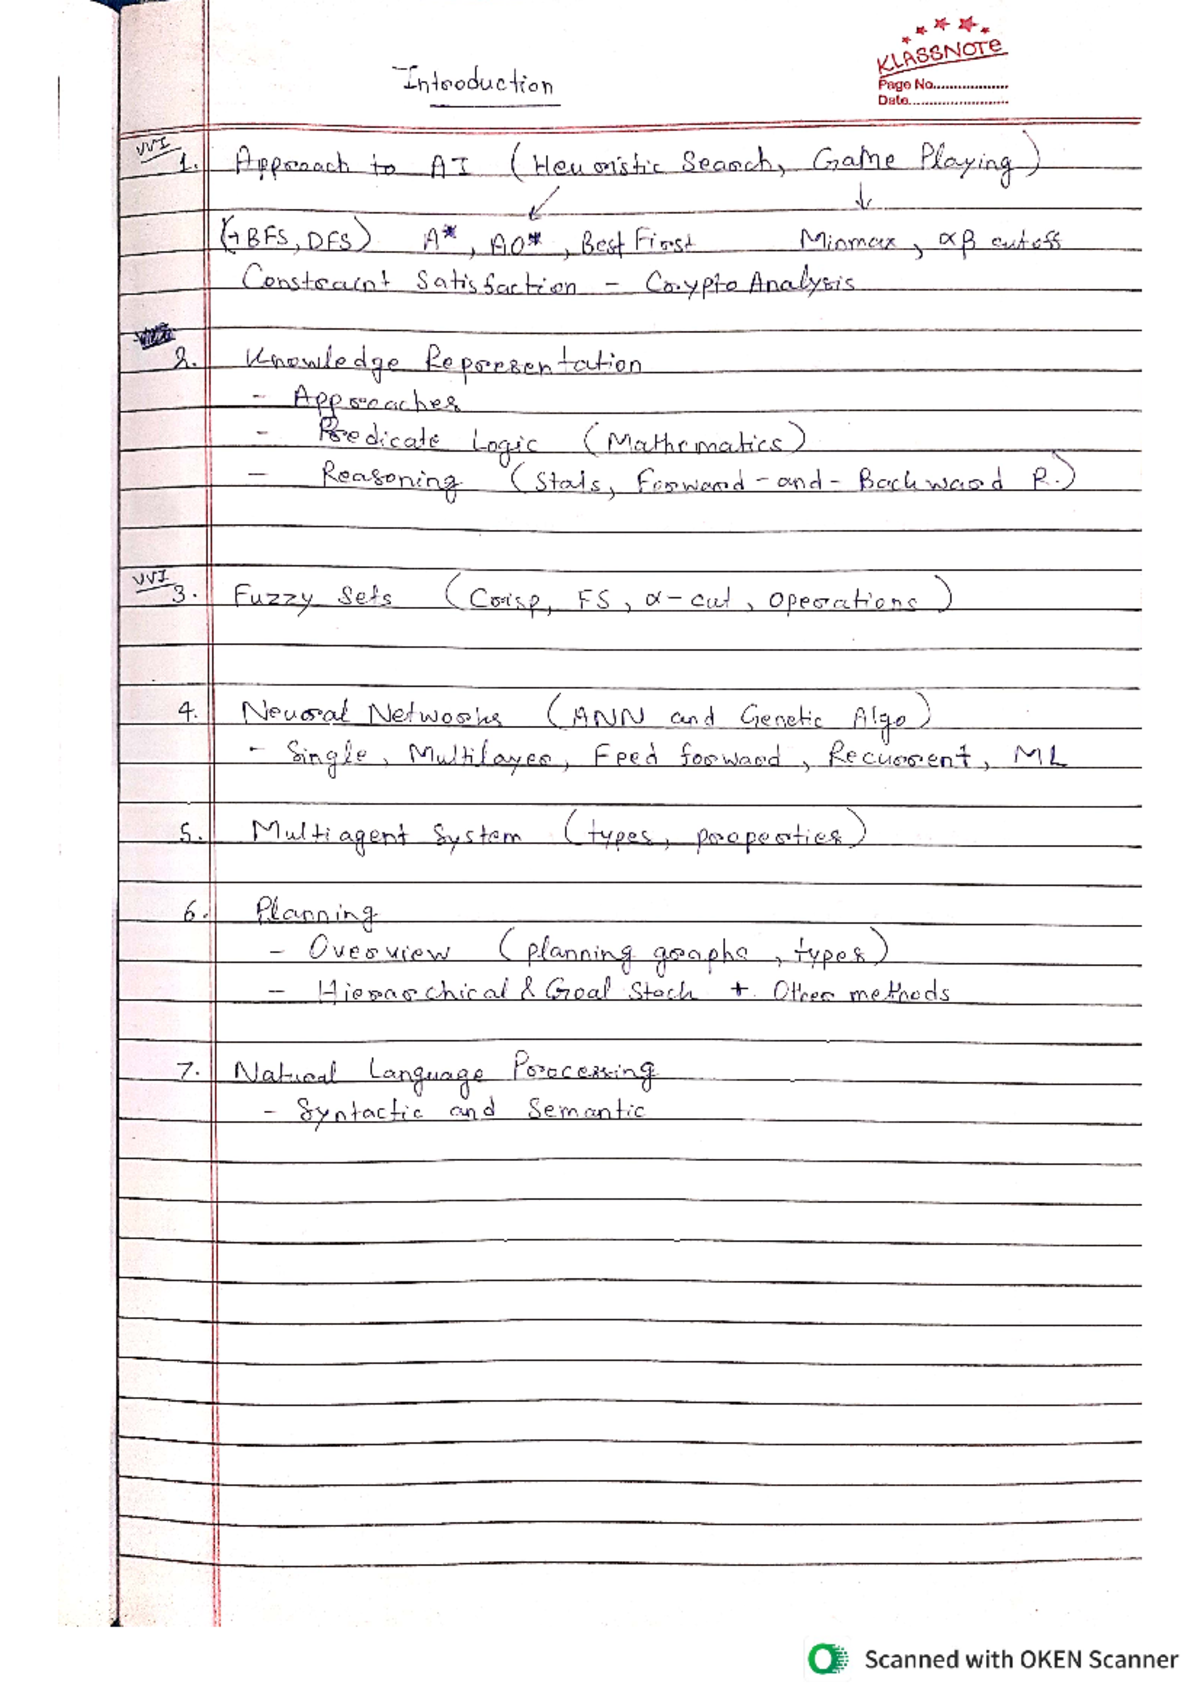 KLASSNOTE
Page No..................
Date........................
Introduction
VVI
1. Approach to AI (Heuristic Search, Game Playing)
(→ BFS, DFS) A*, AO*, Best First Minmax, αβ cutoff
Constraint Satisfaction - Crypto Analysis
2. Knowledge Representation
- Approaches
- Predicate Logic (Mathematics)
- Reasoning (Stats, Forward-and-Backward R.)
VVI
3. Fuzzy Sets (Crisp, FS, α-cut, Operations)
4. Neural Networks (ANN and Genetic Algo)
- Single, Multilayer, Feed forward, Recurrent, ML
5. Multiagent System (types, properties)
6. Planning
- Overview (planning graphs, types)
- Hierarchical & Goal Stack + Other methods
7. Natural Language Processing
- Syntactic and Semantic
Scanned with OKEN Scanner